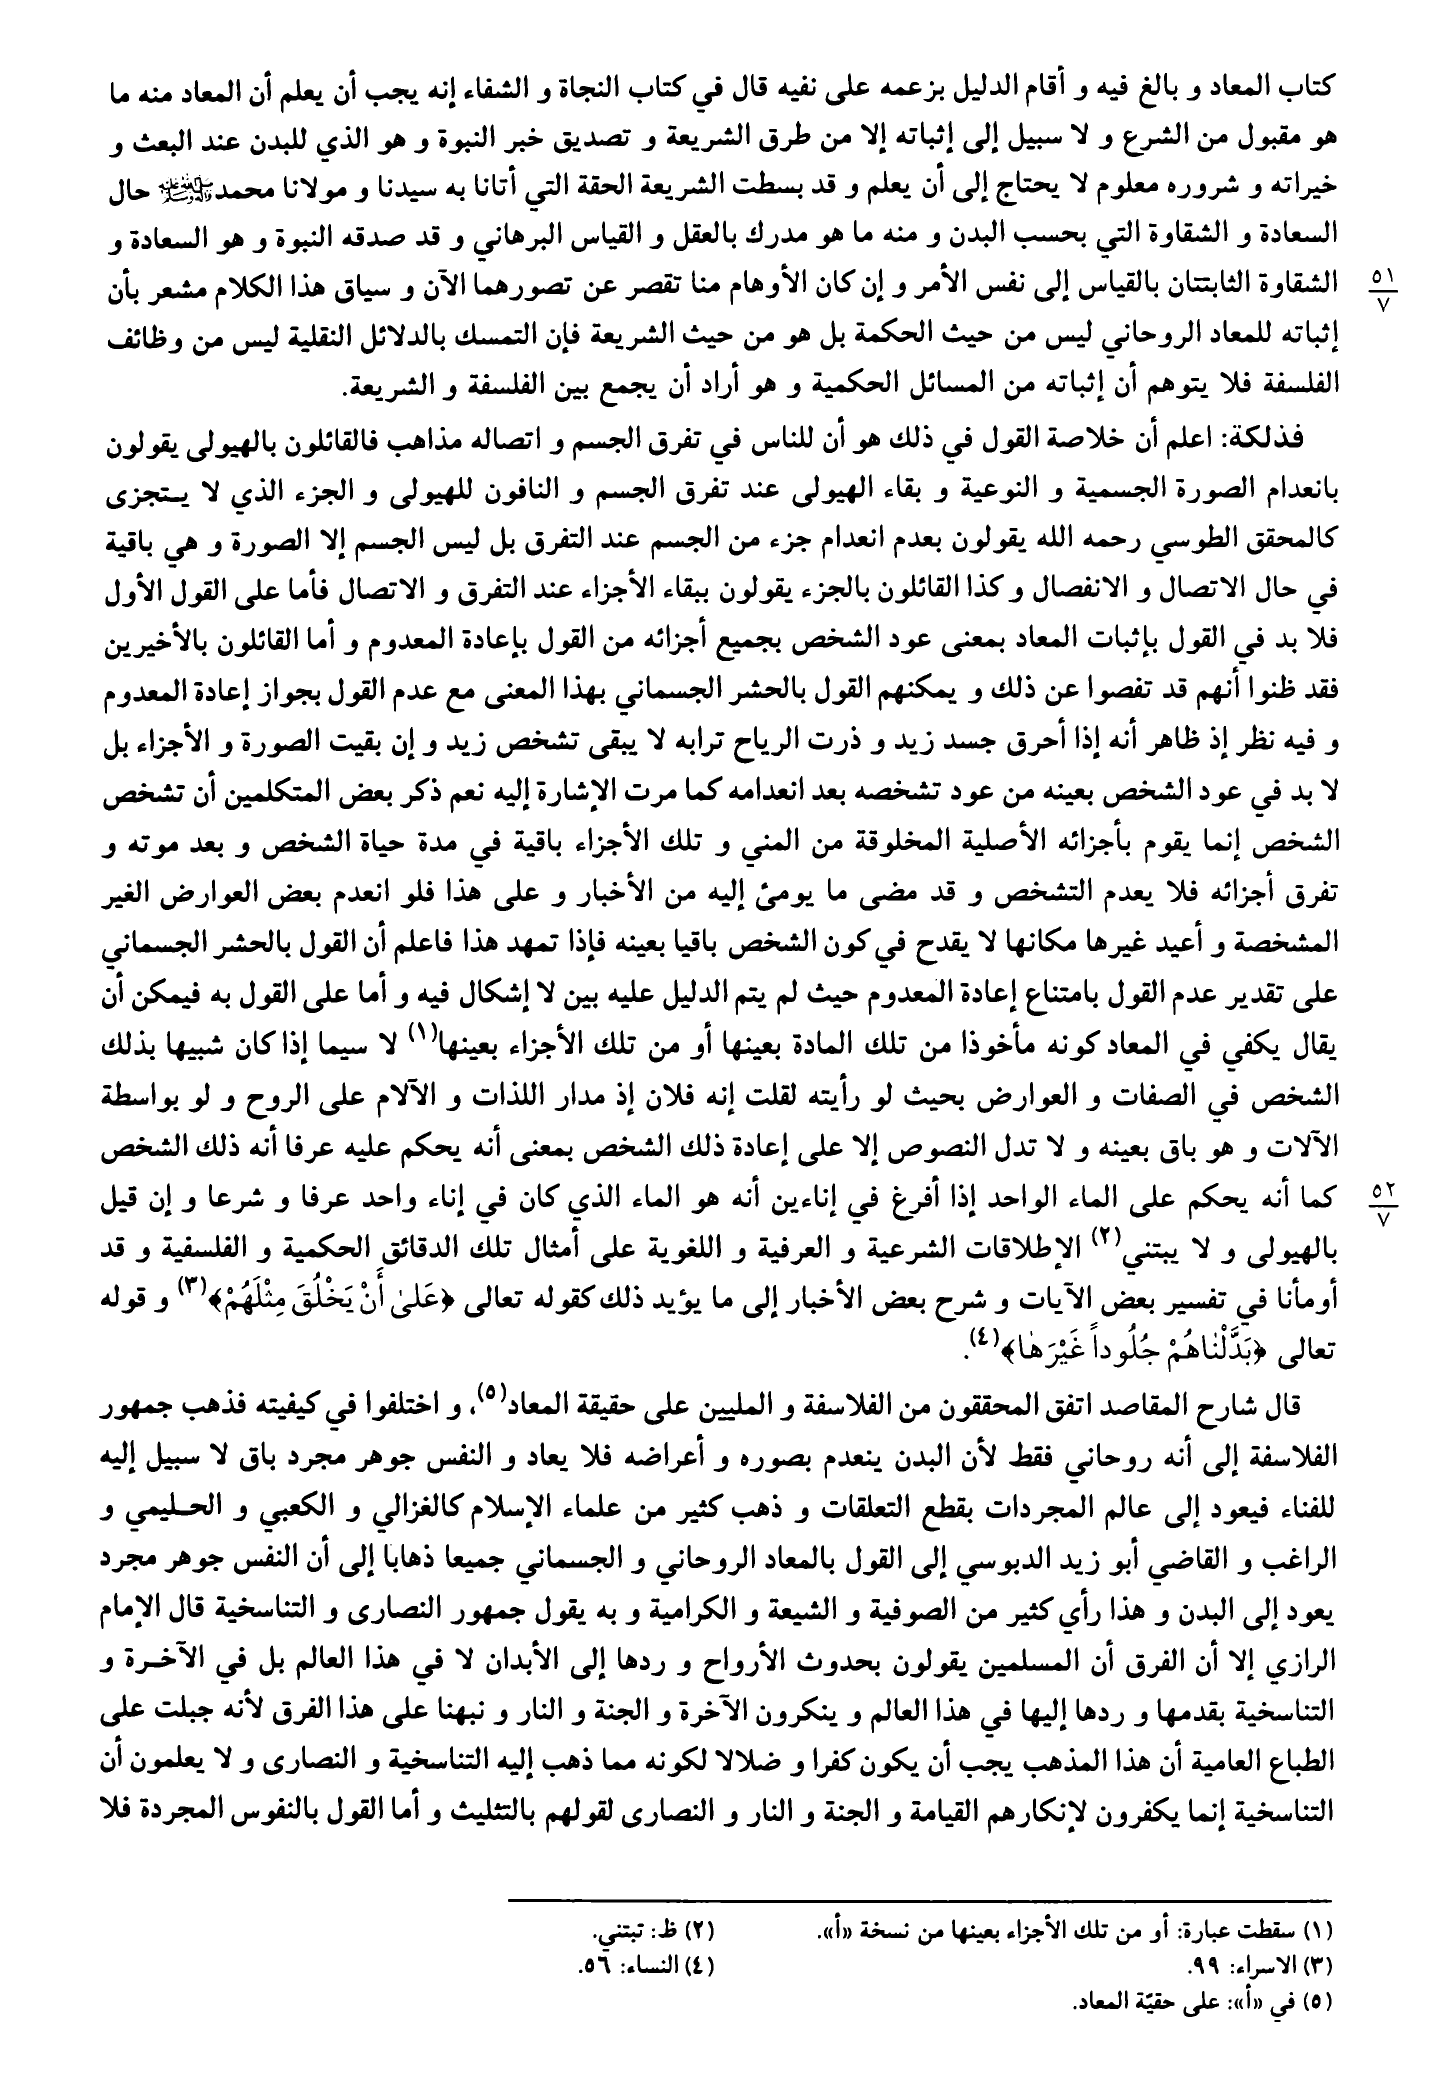 كتاب المعاد و بالغ فيه و أقام الدليل بزعمه على نفيه قال في كتاب النجاة و الشفاء إنه يجب أن يعلم أن المعاد منه ما
هو مقبول من الشرع و لا سبيل إلى إثباته إلا من طرق الشريعة و تصديق خبر النبوة و هو الذي للبدن عند البعث و
خيراته و شروره معلوم لا يحتاج إلى أن يعلم و قد بسطت الشريعة الحقة التي أتانا به سيدنا و مولانا محمد ﷺ حال
السعادة و الشقاوة التي بحسب البدن و منه ما هو مدرك بالعقل و القياس البرهاني و قد صدقه النبوة و هو السعادة و
الشقاوة الثابتتان بالقياس إلى نفس الأمر و إن كان الأوهام منا تقصر عن تصورهما الآن و سياق هذا الكلام مشعر بأن
٥١
٧
إثباته للمعاد الروحاني ليس من حيث الحكمة بل هو من حيث الشريعة فإن التمسك بالدلائل النقلية ليس من وظائف
الفلسفة فلا يتوهم أن إثباته من المسائل الحكمية و هو أراد أن يجمع بين الفلسفة و الشريعة.
فذلكة: اعلم أن خلاصة القول في ذلك هو أن للناس في تفرق الجسم و اتصاله مذاهب فالقائلون بالهيولى يقولون
بانعدام الصورة الجسمية و النوعية و بقاء الهيولى عند تفرق الجسم و النافون للهيولى و الجزء الذي لا يتجزى
كالمحقق الطوسي رحمه الله يقولون بعدم انعدام جزء من الجسم عند التفرق بل ليس الجسم إلا الصورة و هي باقية
في حال الاتصال و الانفصال و كذا القائلون بالجزء يقولون ببقاء الأجزاء عند التفرق و الاتصال فأما على القول الأول
فلا بد في القول بإثبات المعاد بمعنى عود الشخص بجميع أجزائه من القول بإعادة المعدوم و أما القائلون بالأخيرين
فقد ظنوا أنهم قد تفصوا عن ذلك و يمكنهم القول بالحشر الجسماني بهذا المعنى مع عدم القول بجواز إعادة المعدوم
و فيه نظر إذ ظاهر أنه إذا أحرق جسد زيد و ذرت الرياح ترابه لا يبقى تشخص زيد و إن بقيت الصورة و الأجزاء بل
لا بد في عود الشخص بعينه من عود تشخصه بعد انعدامه كما مرت الإشارة إليه نعم ذكر بعض المتكلمين أن تشخص
الشخص إنما يقوم بأجزائه الأصلية المخلوقة من المني و تلك الأجزاء باقية في مدة حياة الشخص و بعد موته و
تفرق أجزائه فلا يعدم التشخص و قد مضى ما يومئ إليه من الأخبار و على هذا فلو انعدم بعض العوارض الغير
المشخصة و أعيد غيرها مكانها لا يقدح في كون الشخص باقيا بعينه فإذا تمهد هذا فاعلم أن القول بالحشر الجسماني
على تقدير عدم القول بامتناع إعادة المعدوم حيث لم يتم الدليل عليه بين لا إشكال فيه و أما على القول به فيمكن أن
يقال يكفي في المعاد كونه مأخوذا من تلك المادة بعينها أو من تلك الأجزاء بعينها(١) لا سيما إذا كان شبيها بذلك
الشخص في الصفات و العوارض بحيث لو رأيته لقلت إنه فلان إذ مدار اللذات و الآلام على الروح و لو بواسطة
الآلات و هو باق بعينه و لا تدل النصوص إلا على إعادة ذلك الشخص بمعنى أنه يحكم عليه عرفا أنه ذلك الشخص
كما أنه يحكم على الماء الواحد إذا أفرغ في إناءين أنه هو الماء الذي كان في إناء واحد عرفا و شرعا و إن قيل
٥٢
٧
بالهيولى و لا يبتني(٢) الإطلاقات الشرعية و العرفية و اللغوية على أمثال تلك الدقائق الحكمية و الفلسفية و قد
أومأنا في تفسير بعض الآيات و شرح بعض الأخبار إلى ما يؤيد ذلك كقوله تعالى ﴿عَلىٰ أَنْ يَخْلُقَ مِثْلَهُمْ﴾(٣) و قوله
تعالى ﴿بَدَّلْنٰاهُمْ جُلُوداً غَيْرَهٰا﴾(٤).
قال شارح المقاصد اتفق المحققون من الفلاسفة و المليين على حقيقة المعاد(٥)، و اختلفوا في كيفيته فذهب جمهور
الفلاسفة إلى أنه روحاني فقط لأن البدن ينعدم بصوره و أعراضه فلا يعاد و النفس جوهر مجرد باق لا سبيل إليه
للفناء فيعود إلى عالم المجردات بقطع التعلقات و ذهب كثير من علماء الإسلام كالغزالي و الكعبي و الحليمي و
الراغب و القاضي أبو زيد الدبوسي إلى القول بالمعاد الروحاني و الجسماني جميعا ذهابا إلى أن النفس جوهر مجرد
يعود إلى البدن و هذا رأي كثير من الصوفية و الشيعة و الكرامية و به يقول جمهور النصارى و التناسخية قال الإمام
الرازي إلا أن الفرق أن المسلمين يقولون بحدوث الأرواح و ردها إلى الأبدان لا في هذا العالم بل في الآخرة و
التناسخية بقدمها و ردها إليها في هذا العالم و ينكرون الآخرة و الجنة و النار و نبهنا على هذا الفرق لأنه جبلت على
الطباع العامية أن هذا المذهب يجب أن يكون كفرا و ضلالا لكونه مما ذهب إليه التناسخية و النصارى و لا يعلمون أن
التناسخية إنما يكفرون لإنكارهم القيامة و الجنة و النار و النصارى لقولهم بالتثليث و أما القول بالنفوس المجردة فلا
(١) سقطت عبارة: أو من تلك الأجزاء بعينها من نسخة «أ».
(٢) ظ: تبتني.
(٣) الاسراء: ٩٩.
(٤) النساء: ٥٦.
(٥) في «أ»: على حقيّة المعاد.